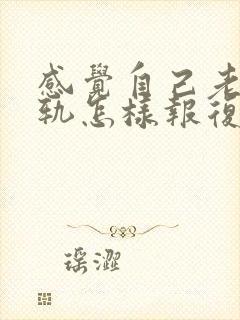 感覺自己老
軌怎樣報復
瑶澀